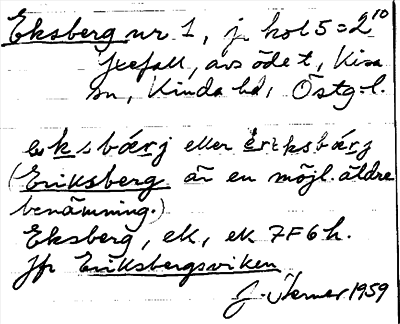 Eksberg nr 1, jr kol 5 = 2¹⁰
Jxefall, avsödet, Kisa
sn, Kinda hd, Östg-l.
eksbærj eller eriksbærj
(Eriksberg är en möjl. äldre
benämning.)
Eksberg, ek, ek 7F6h.
Jfr Eriksbergsviken.
G. Verner 1959